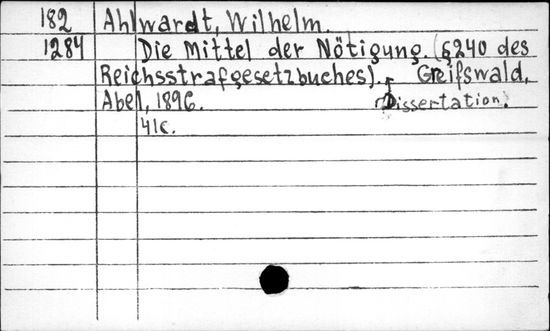 182 Ahlwardt, Wilhelm.
1284 Die Mittel der Nötigung. (§240 des
Reichsstrafgesetzbuches). Greifswald,
Abel, 1896. Dissertation.
41c.